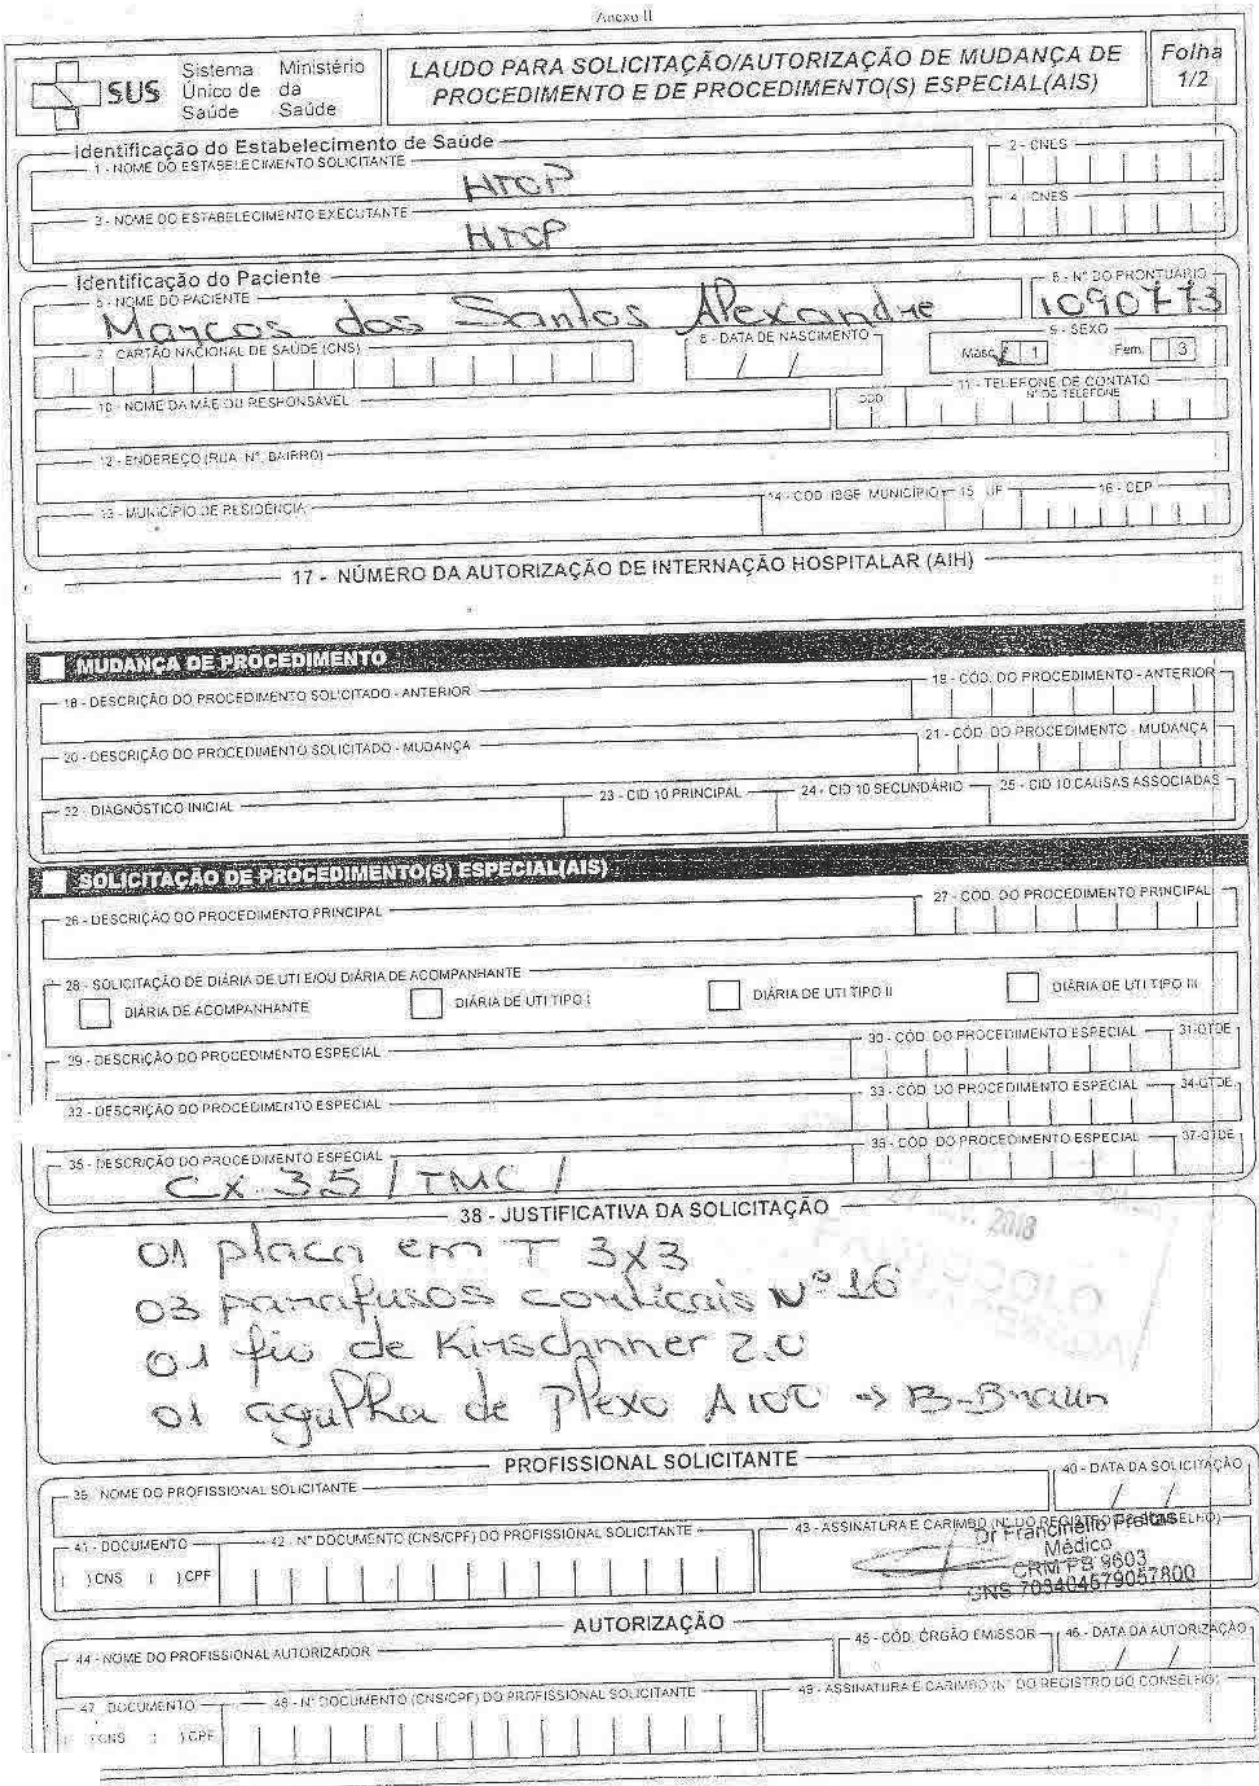 Anexo II
SUS
Sistema Único de Saúde
Ministério da Saúde
LAUDO PARA SOLICITAÇÃO/AUTORIZAÇÃO DE MUDANÇA DE PROCEDIMENTO E DE PROCEDIMENTO(S) ESPECIAL(AIS)
Folha 1/2
Identificação do Estabelecimento de Saúde
1 - NOME DO ESTABELECIMENTO SOLICITANTE
2 - CNES
HTOP
3 - NOME DO ESTABELECIMENTO EXECUTANTE
4 - CNES
HTOP
Identificação do Paciente
5 - NOME DO PACIENTE
6 - N° DO PRONTUÁRIO
Marcos dos Santos Alexandre
1090773
7 - CARTÃO NACIONAL DE SAÚDE (CNS)
8 - DATA DE NASCIMENTO
9 - SEXO
Masc. 1
Fem. 3
10 - NOME DA MÃE OU RESPONSÁVEL
11 - TELEFONE DE CONTATO
DDD
N° DO TELEFONE
12 - ENDEREÇO (RUA, N°, BAIRRO)
13 - MUNICÍPIO DE RESIDÊNCIA
14 - CÓD. IBGE MUNICÍPIO
15 - UF
16 - CEP
17 - NÚMERO DA AUTORIZAÇÃO DE INTERNAÇÃO HOSPITALAR (AIH)
MUDANÇA DE PROCEDIMENTO
18 - DESCRIÇÃO DO PROCEDIMENTO SOLICITADO - ANTERIOR
19 - CÓD. DO PROCEDIMENTO - ANTERIOR
20 - DESCRIÇÃO DO PROCEDIMENTO SOLICITADO - MUDANÇA
21 - CÓD. DO PROCEDIMENTO - MUDANÇA
22 - DIAGNÓSTICO INICIAL
23 - CID 10 PRINCIPAL
24 - CID 10 SECUNDÁRIO
25 - CID 10 CAUSAS ASSOCIADAS
SOLICITAÇÃO DE PROCEDIMENTO(S) ESPECIAL(AIS)
26 - DESCRIÇÃO DO PROCEDIMENTO PRINCIPAL
27 - CÓD. DO PROCEDIMENTO PRINCIPAL
28 - SOLICITAÇÃO DE DIÁRIA DE UTI E/OU DIÁRIA DE ACOMPANHANTE
DIÁRIA DE ACOMPANHANTE
DIÁRIA DE UTI TIPO I
DIÁRIA DE UTI TIPO II
DIÁRIA DE UTI TIPO III
29 - DESCRIÇÃO DO PROCEDIMENTO ESPECIAL
30 - CÓD. DO PROCEDIMENTO ESPECIAL
31-QTDE
32 - DESCRIÇÃO DO PROCEDIMENTO ESPECIAL
33 - CÓD. DO PROCEDIMENTO ESPECIAL
34-QTDE
35 - DESCRIÇÃO DO PROCEDIMENTO ESPECIAL
36 - CÓD. DO PROCEDIMENTO ESPECIAL
37-QTDE
Cx. 3.5 / TMC /
38 - JUSTIFICATIVA DA SOLICITAÇÃO
2018
01 placa em T 3x3
03 parafusos corticais N° 16
01 fio de Kirschnner 2.0
01 agulha de plexo A100 → B-Braun
PROFISSIONAL SOLICITANTE
39 - NOME DO PROFISSIONAL SOLICITANTE
40 - DATA DA SOLICITAÇÃO
41 - DOCUMENTO
( ) CNS ( ) CPF
42 - N° DOCUMENTO (CNS/CPF) DO PROFISSIONAL SOLICITANTE
43 - ASSINATURA E CARIMBO (N° DO REGISTRO DO CONSELHO)
Dr Francinello Freitas
Médico
CRM PB 9603
CNS 703404679057800
AUTORIZAÇÃO
44 - NOME DO PROFISSIONAL AUTORIZADOR
45 - CÓD. ÓRGÃO EMISSOR
46 - DATA DA AUTORIZAÇÃO
47 - DOCUMENTO
( ) CNS ( ) CPF
48 - N° DOCUMENTO (CNS/CPF) DO PROFISSIONAL SOLICITANTE
49 - ASSINATURA E CARIMBO (N° DO REGISTRO DO CONSELHO)